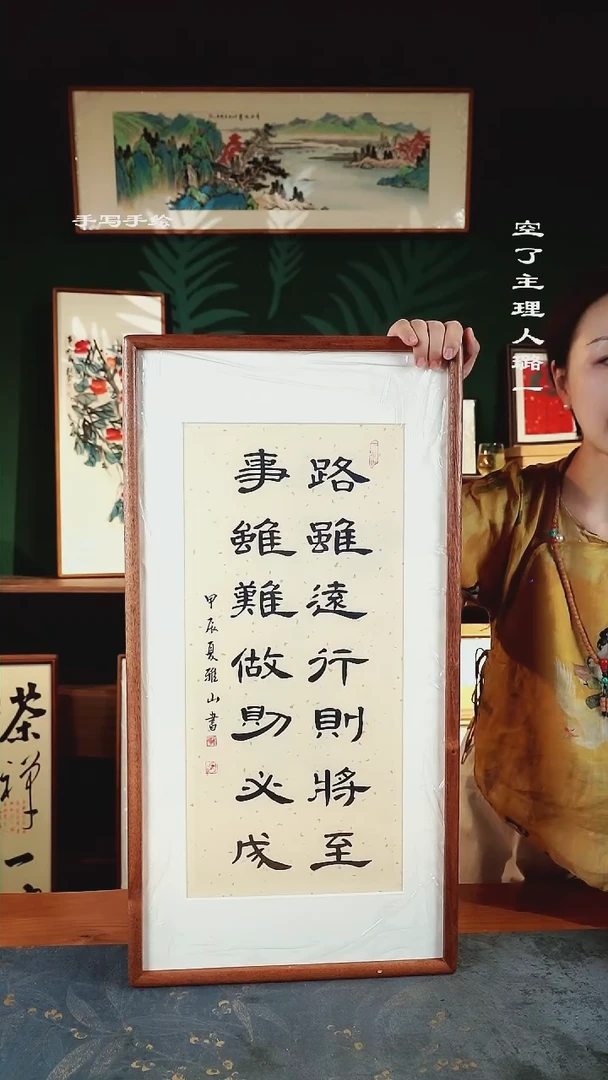 手写手绘
空了主理人璐一
路雖遠行則將至
事雖難做則必成
甲辰夏雅山書
茶禅一